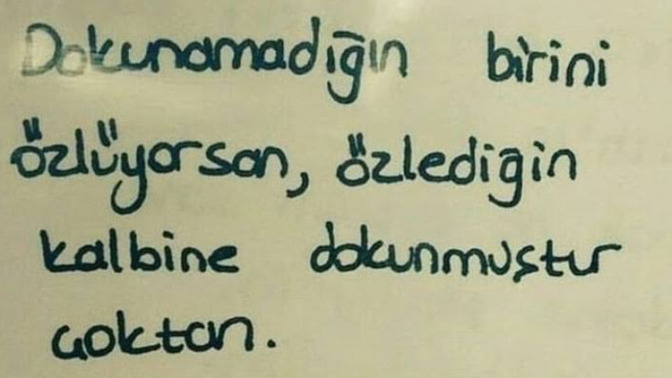 Dokunamadığın birini
özlüyorsan, özlediğin
kalbine dokunmuştur
çoktan.